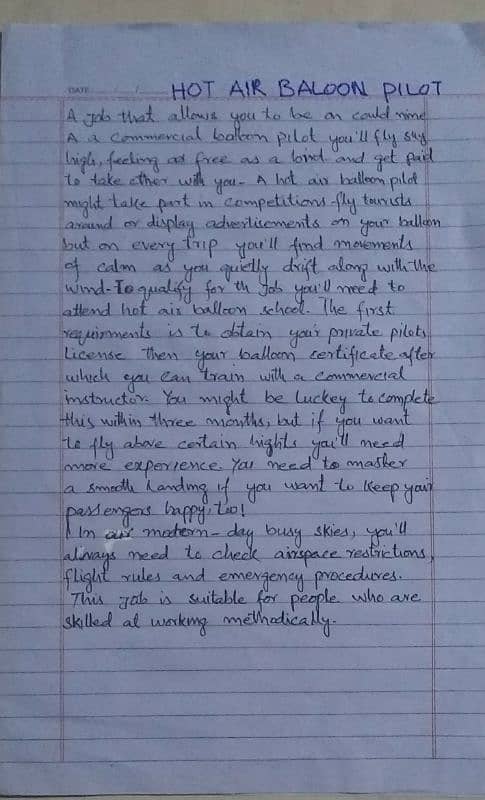 DATE / /
HOT AIR BALOON PILOT
A job that allows you to be on could nine
A a commercial balloon pilot you'll fly sky
high, feeling as free as a bird and get paid
to take other with you- A hot air balloon pilot
might take part in competitions-fly tourists
around or display advertisements on your balloon
but on every trip you'll find movements
of calm as you quietly drift along with the
wind-To qualify for th job you'll need to
attend hot air balloon school. The first
requirments is to obtain your private pilots
License then your balloon certificate after
which you can train with a commercial
instructor. You might be luckey to complete
this within three months, but if you want
to fly above certain hights you'll need
more experience. You need to master
a smooth Landing if you want to keep your
passengers happy, too!
In our modern-day busy skies, you'll
always need to check airspace restrictions,
flight rules and emergency procedures.
This job is suitable for people who are
skilled at working methodically.